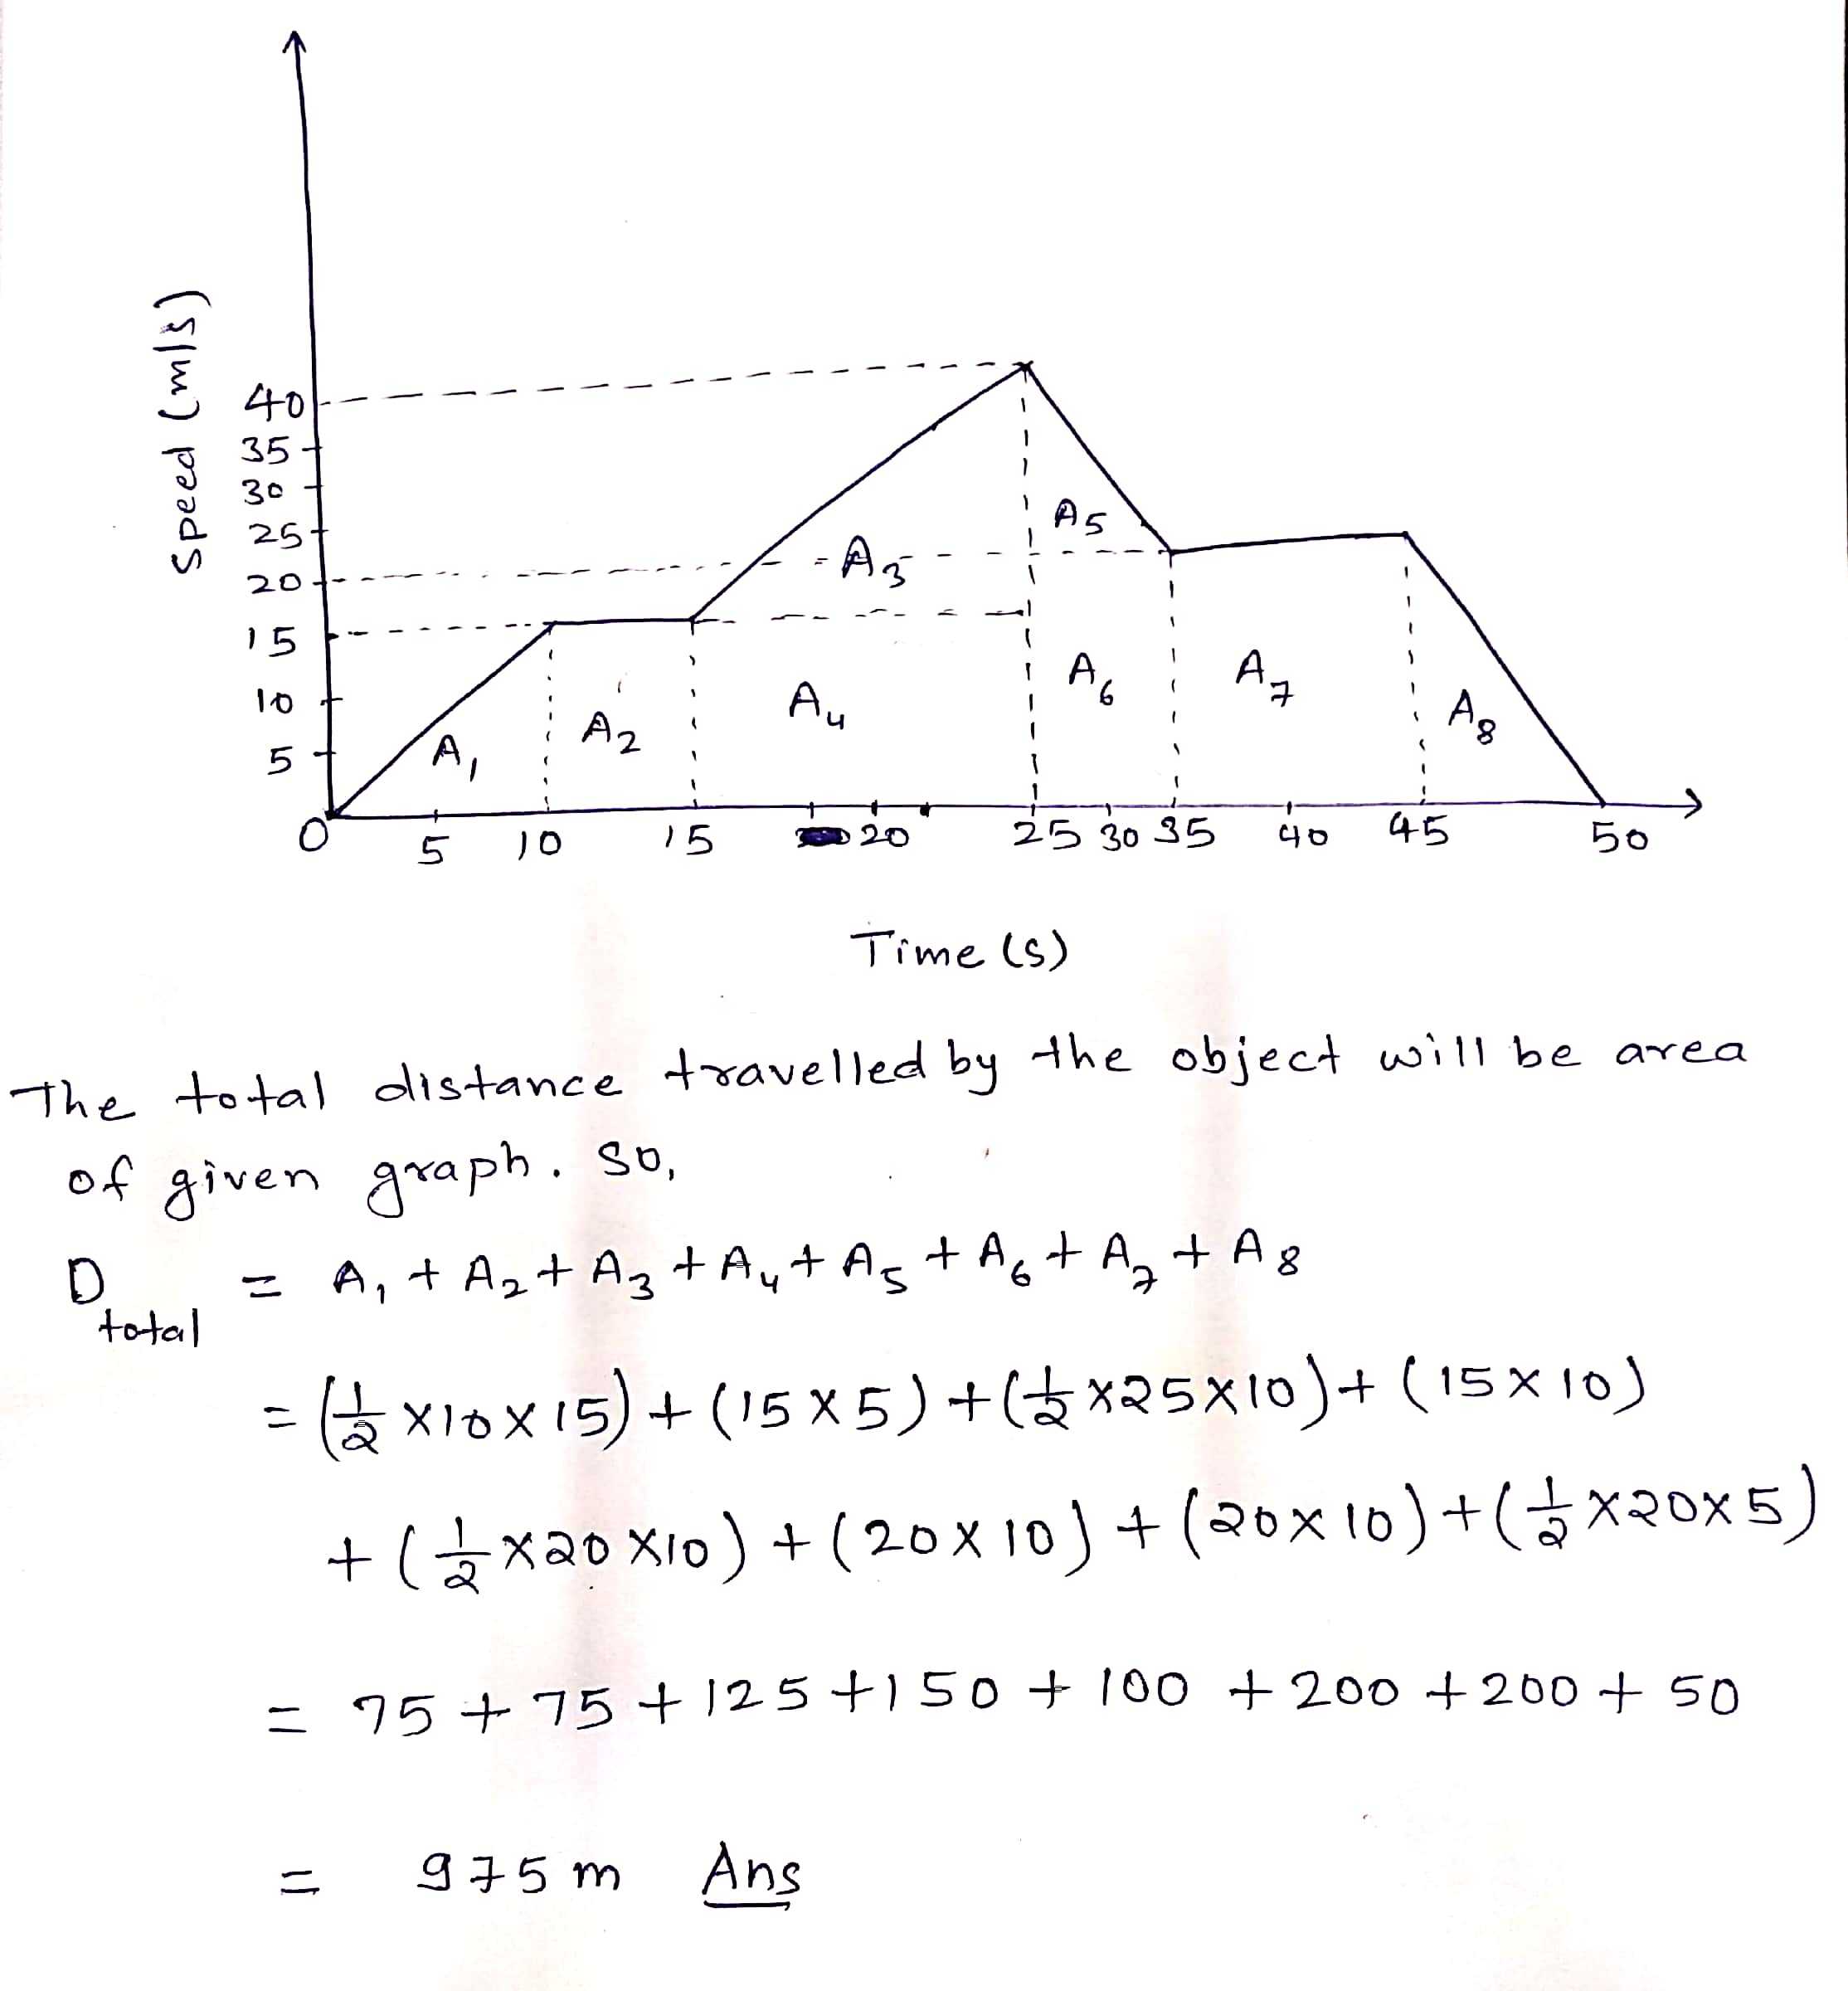 Speed (m/s)
40
35
30
25
20
15
10
5
0
A₁
A₂
A₃
A₄
A₅
A₆
A₇
A₈
5 10 15 20 25 30 35 40 45 50
Time (s)
The total distance travelled by the object will be area
of given graph. so,
D total = A₁ + A₂ + A₃ + A₄ + A₅ + A₆ + A₇ + A₈
= (1/2 × 10 × 15) + (15 × 5) + (1/2 × 25 × 10) + (15 × 10)
+ (1/2 × 20 × 10) + (20 × 10) + (20 × 10) + (1/2 × 20 × 5)
= 75 + 75 + 125 + 150 + 100 + 200 + 200 + 50
= 975 m Ans